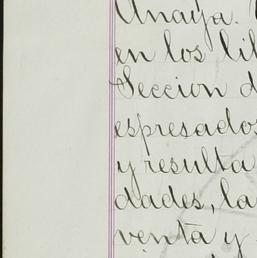 Anaya.
en los lib
Seccion d
espresados
y resulta
dades, la
venta y